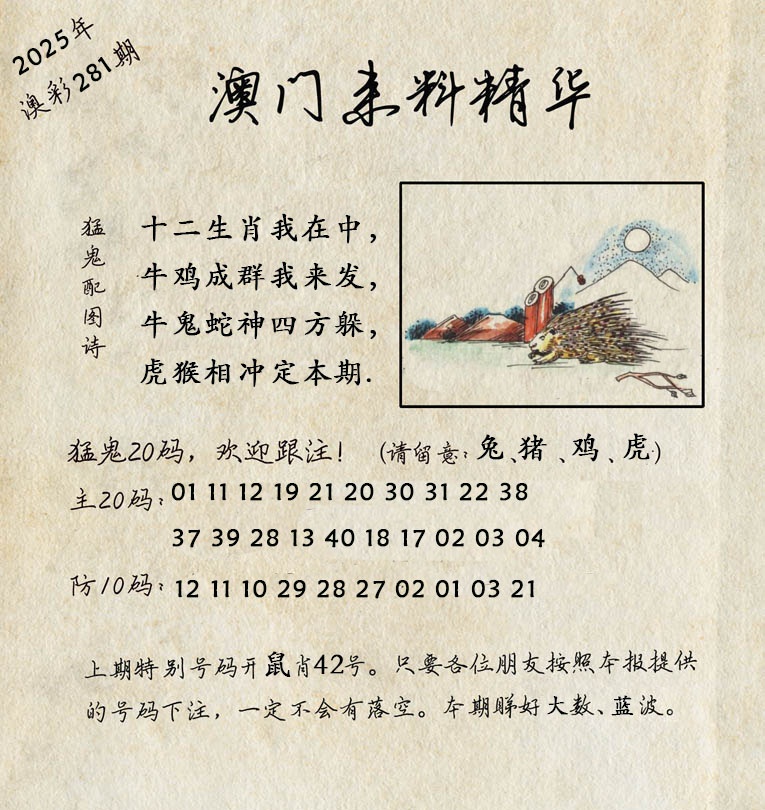 2025年
澳彩281期
澳门来料精华
猛鬼配图诗
十二生肖我在中，
牛鸡成群我来发，
牛鬼蛇神四方躲，
虎猴相冲定本期.
猛鬼20码，欢迎跟注！（请留意：兔、猪、鸡、虎）
主20码：01 11 12 19 21 20 30 31 22 38
37 39 28 13 40 18 17 02 03 04
防10码：12 11 10 29 28 27 02 01 03 21
上期特别号码开鼠肖42号。只要各位朋友按照本报提供
的号码下注，一定不会有落空。本期睇好大数、蓝波。